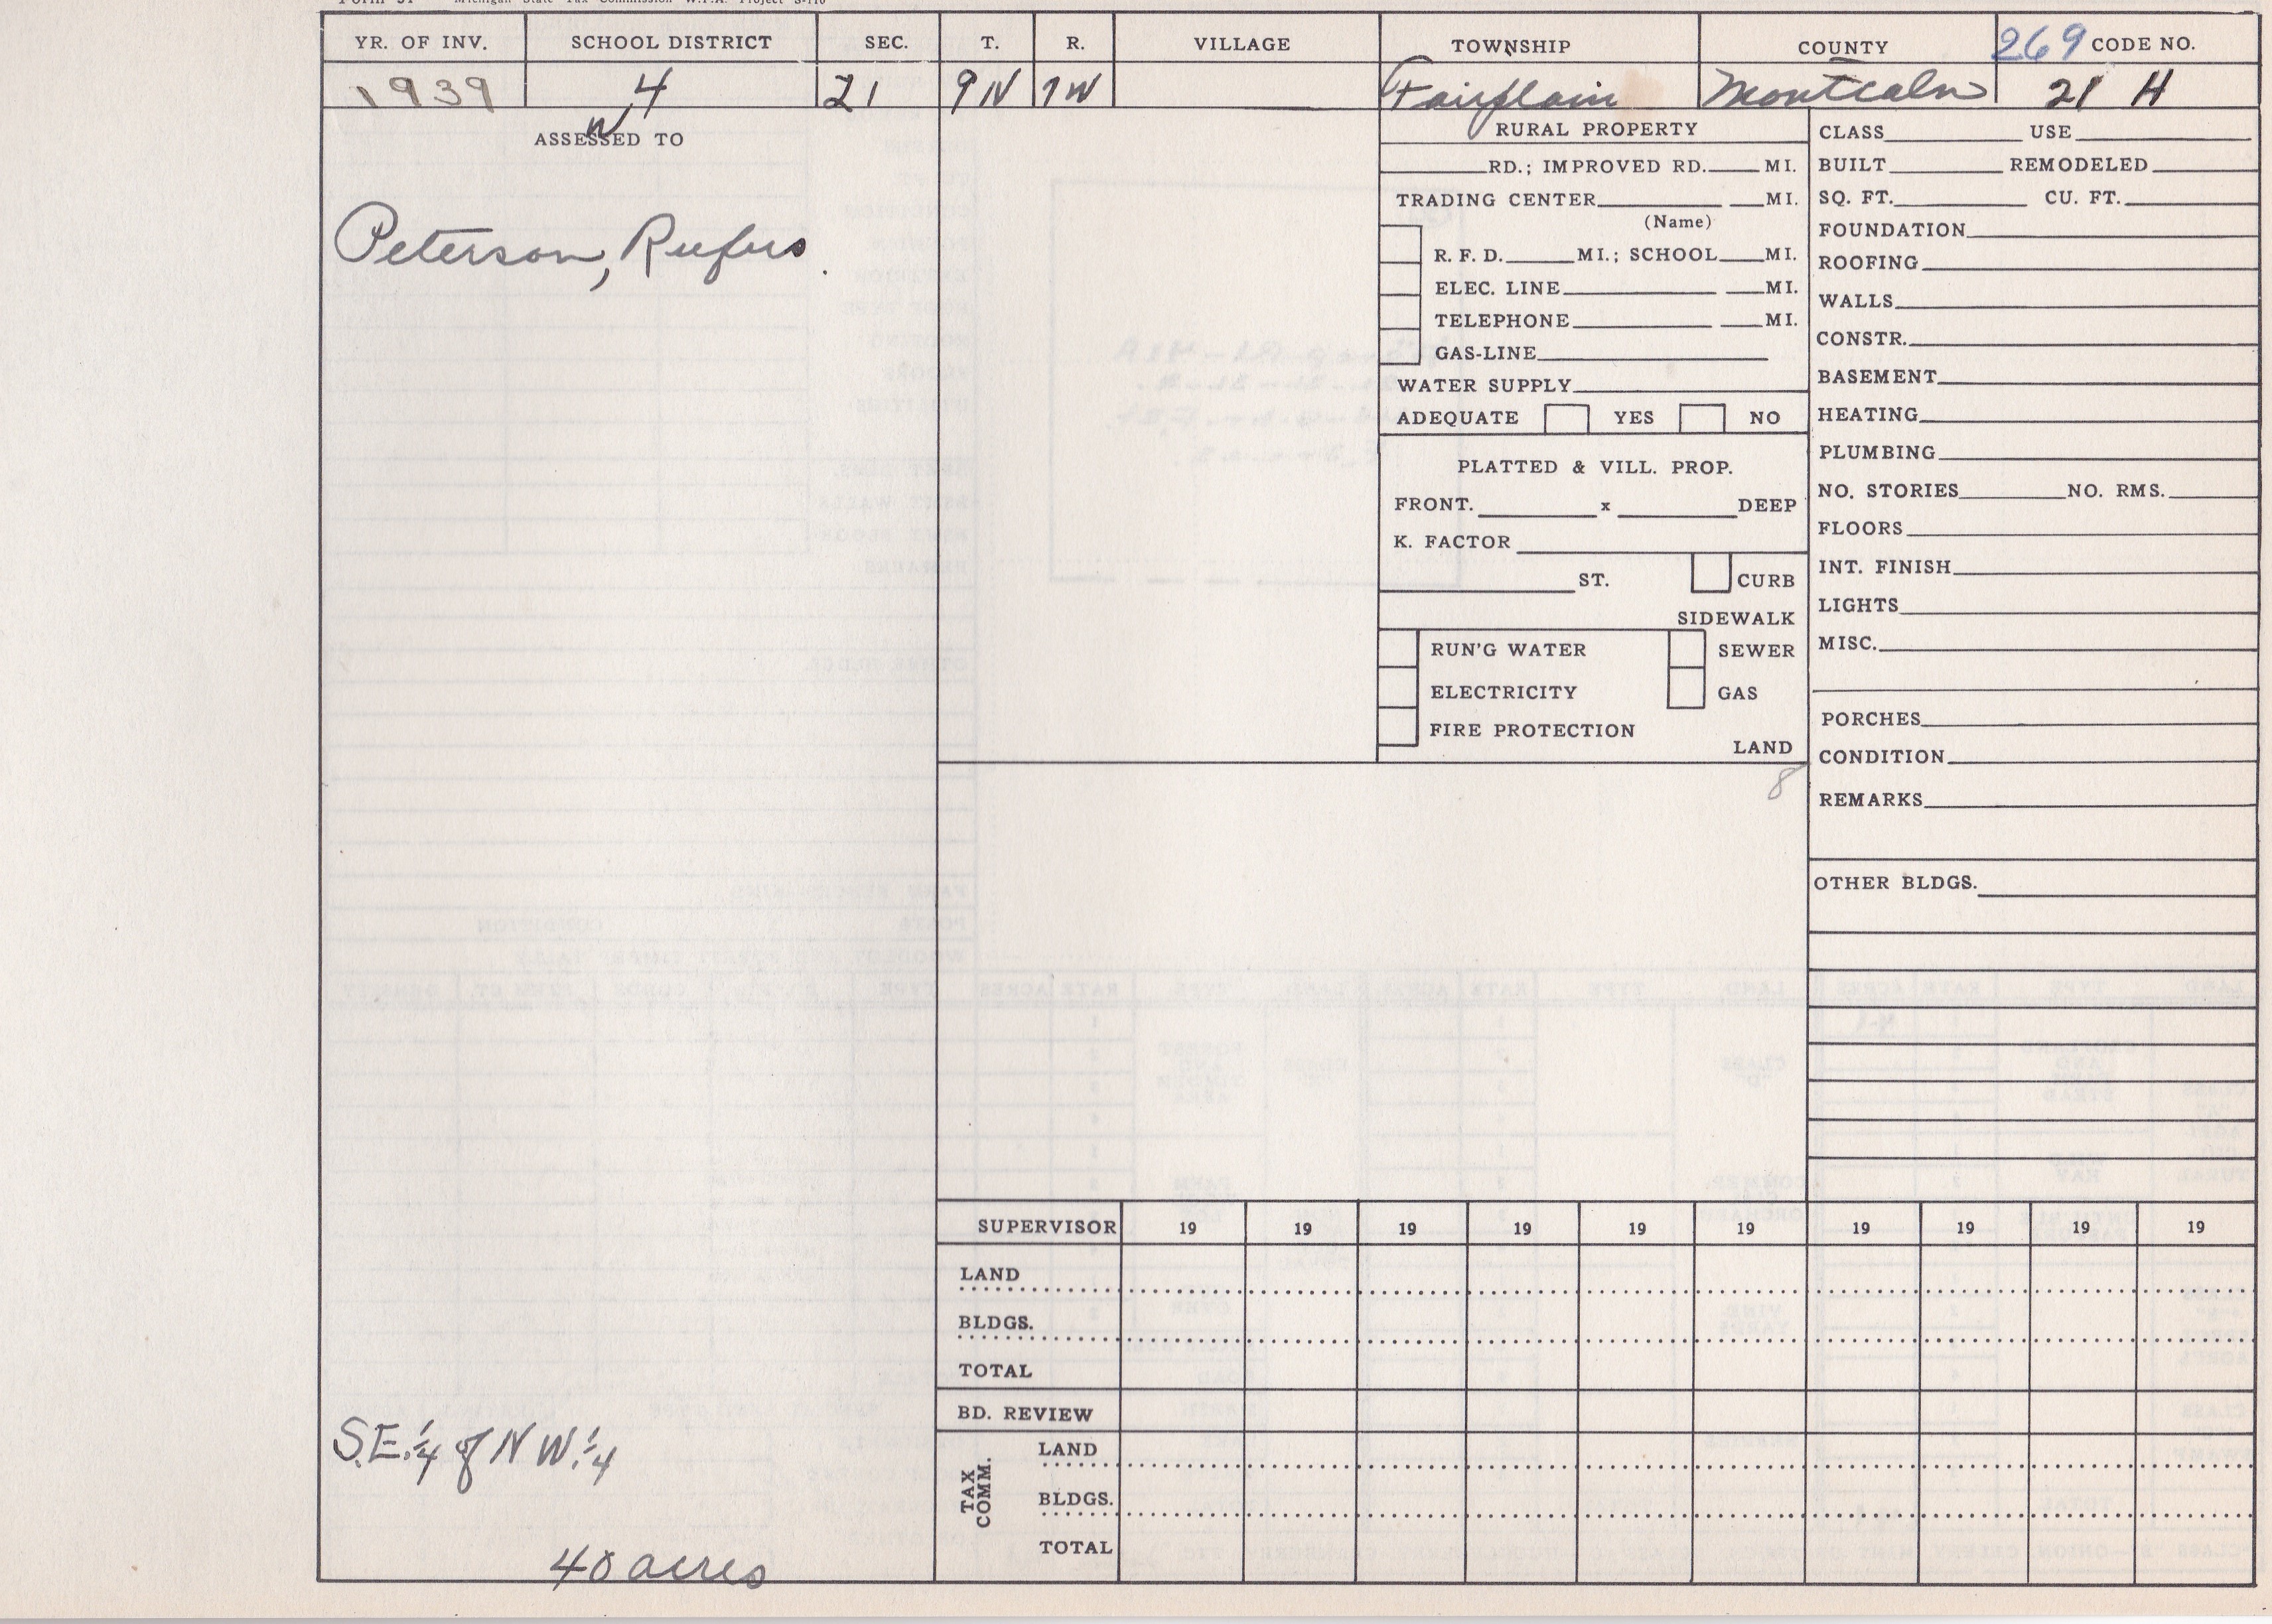 Form 31 Michigan State Tax Commission W.P.A. Project S-116
YR. OF INV. SCHOOL DISTRICT SEC. T. R. VILLAGE TOWNSHIP COUNTY 269 CODE NO.
1939 4 21 9N 7W Fairplain Montcalm 21 H
W
ASSESSED TO
Peterson, Rufus.
S.E.¼ of N W.¼
40 acres
RURAL PROPERTY
RD.; IMPROVED RD. MI.
TRADING CENTER MI.
(Name)
R. F. D. MI.; SCHOOL MI.
ELEC. LINE MI.
TELEPHONE MI.
GAS-LINE
WATER SUPPLY
ADEQUATE YES NO
PLATTED & VILL. PROP.
FRONT. x DEEP
K. FACTOR
ST. CURB
SIDEWALK
RUN'G WATER SEWER
ELECTRICITY GAS
FIRE PROTECTION
LAND
8
CLASS USE
BUILT REMODELED
SQ. FT. CU. FT.
FOUNDATION
ROOFING
WALLS
CONSTR.
BASEMENT
HEATING
PLUMBING
NO. STORIES NO. RMS.
FLOORS
INT. FINISH
LIGHTS
MISC.
PORCHES
CONDITION
REMARKS
OTHER BLDGS.
SUPERVISOR 19 19 19 19 19 19 19 19 19 19
LAND
BLDGS.
TOTAL
BD. REVIEW
TAX COMM.
LAND
BLDGS.
TOTAL